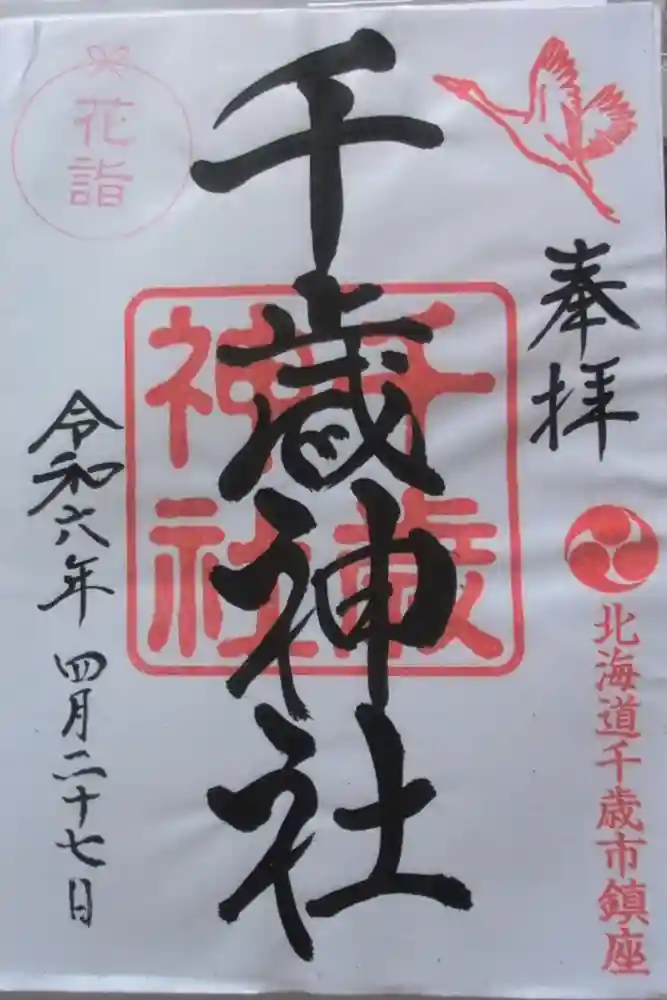 奉拝
北海道千歳市鎮座
千歳神社
千歳
神社
令和六年 四月二十七日
花詣